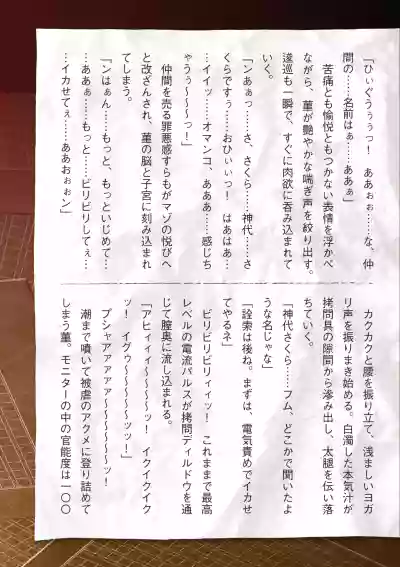 「ひぃぐうぅぅっ！　ああぉぉ……な、仲
間の……名前はぁ……ああぁ」
　苦痛とも愉悦ともつかない表情を浮かべ
ながら、菫が艶やかな喘ぎ声を絞り出す。
逡巡も一瞬で、すぐに肉欲に呑み込まれて
いく。
「ンあぁっ……さ、さくら……神代……さ
くらですぅ……おひぃぃっ！　はあはあ…
…イイッ……オマンコ、あああ……感じち
ゃうぅ～～～～っ！」
　仲間を売る罪悪感すらもがマゾの悦びへ
と改ざんされ、菫の脳と子宮に刻み込まれ
てしまう。
「ンはぁん……もっと、もっといじめて…
…ああぁ……もっと……ビリビリしてぇ…
…イカせてぇ……ああおぉぉン」
　カクカクと腰を振り立て、浅ましいヨガ
リ声を振りまき始める。白濁した本気汁が
拷問具の隙間から滲み出し、太腿を伝い落
ちていく。
「神代さくら……フム、どこかで聞いたよ
うな名じゃな」
「詮索は後ね。まずは、電気責めでイカせ
てやるネ」
　ビリビリビリィィッ！　これまでで最高
レベルの電流パルスが拷問ディルドウを通
じて膣奥に流し込まれる。
「アヒィィィ～～～～ッ！　イクイクイク
ッ！　イグゥ～～～～～ッッ！」
　プシャアァァァァ～～～～～～～～ッ！
　潮まで噴いて被虐のアクメに登り詰めて
しまう菫。モニターの中の官能度は一〇〇